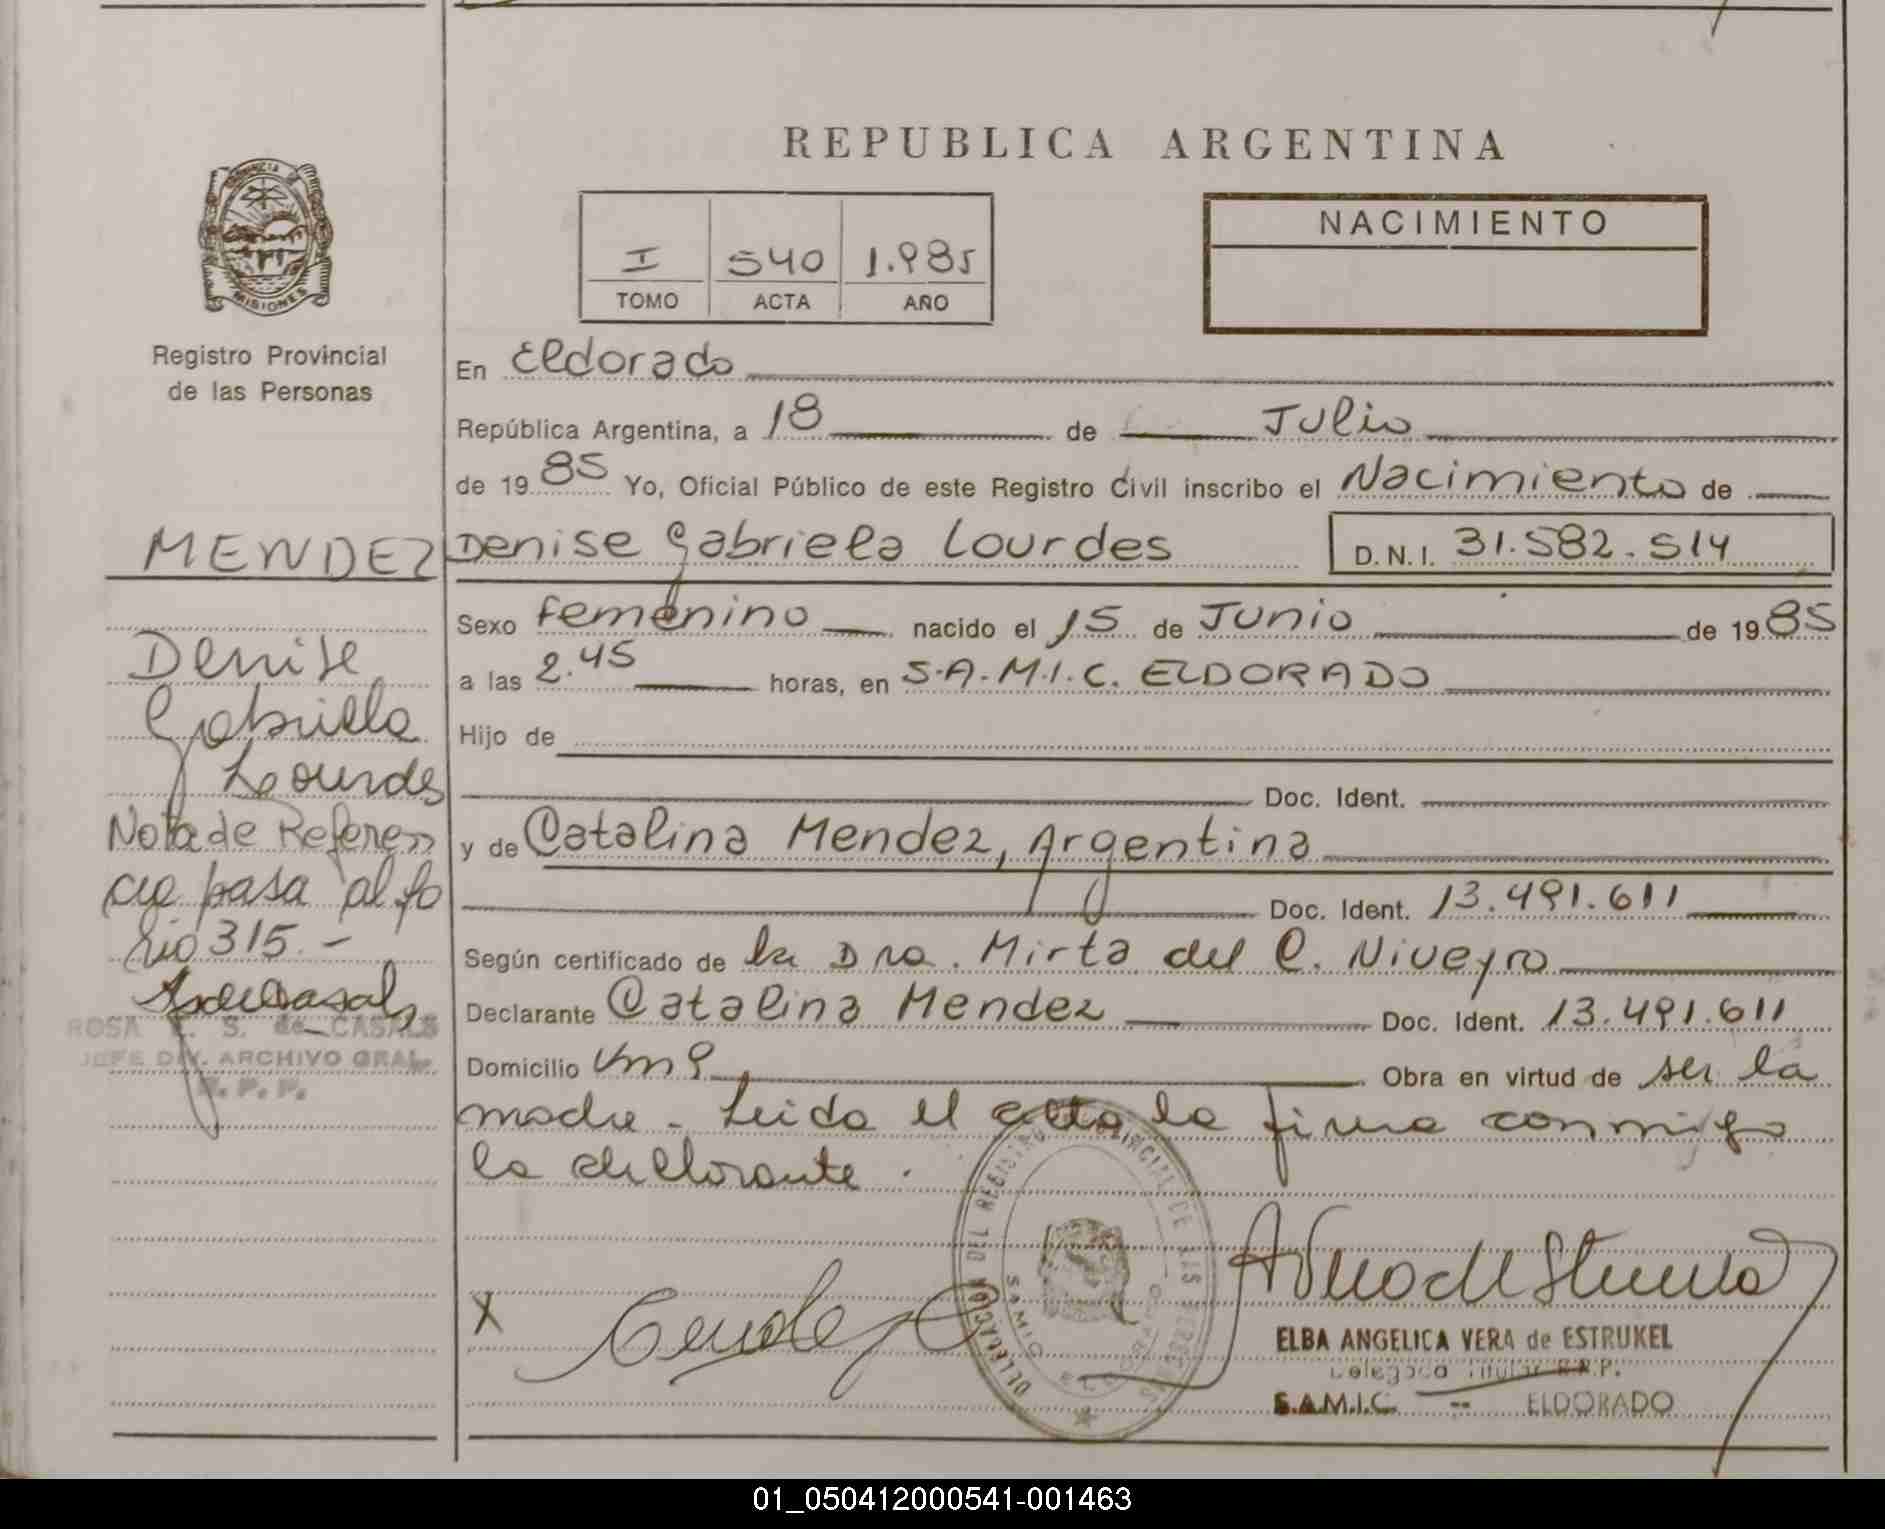 REPUBLICA ARGENTINA
PROVINCIA DE
MISIONES
Registro Provincial
de las Personas
I 540 1.985
TOMO ACTA AÑO
NACIMIENTO
En Eldorado
República Argentina, a 18 de Julio
de 1985 Yo, Oficial Público de este Registro Civil inscribo el Nacimiento de
MENDEZ
Denise Gabriela Lourdes D.N.I. 31.582.514
Sexo femenino nacido el 15 de Junio de 1985
a las 2.45 horas, en S.A.M.I.C. ELDORADO
Hijo de
Doc. Ident.
y de Catalina Mendez, Argentina
Doc. Ident. 13.491.611
Según certificado de la Dra. Mirta del C. Niveyro
Declarante Catalina Mendez Doc. Ident. 13.491.611
Domicilio Km 9 Obra en virtud de ser la
madre - Leida el acta la firma conmigo
la declarante.
Denise
Gabriela
Lourdes
Nota de Referen
cia pasa al fo
lio 315.-
ROSA S. de CASALS
JEFE DIV. ARCHIVO GRAL.
R. P. P.
X
DELEGACION DEL REGISTRO PROVINCIAL DE LAS PERSONAS
SAMIC ELDORADO
ELBA ANGELICA VERA de ESTRUKEL
Delegada Titular R.P.P.
S.A.M.I.C. -- ELDORADO
01_050412000541-001463